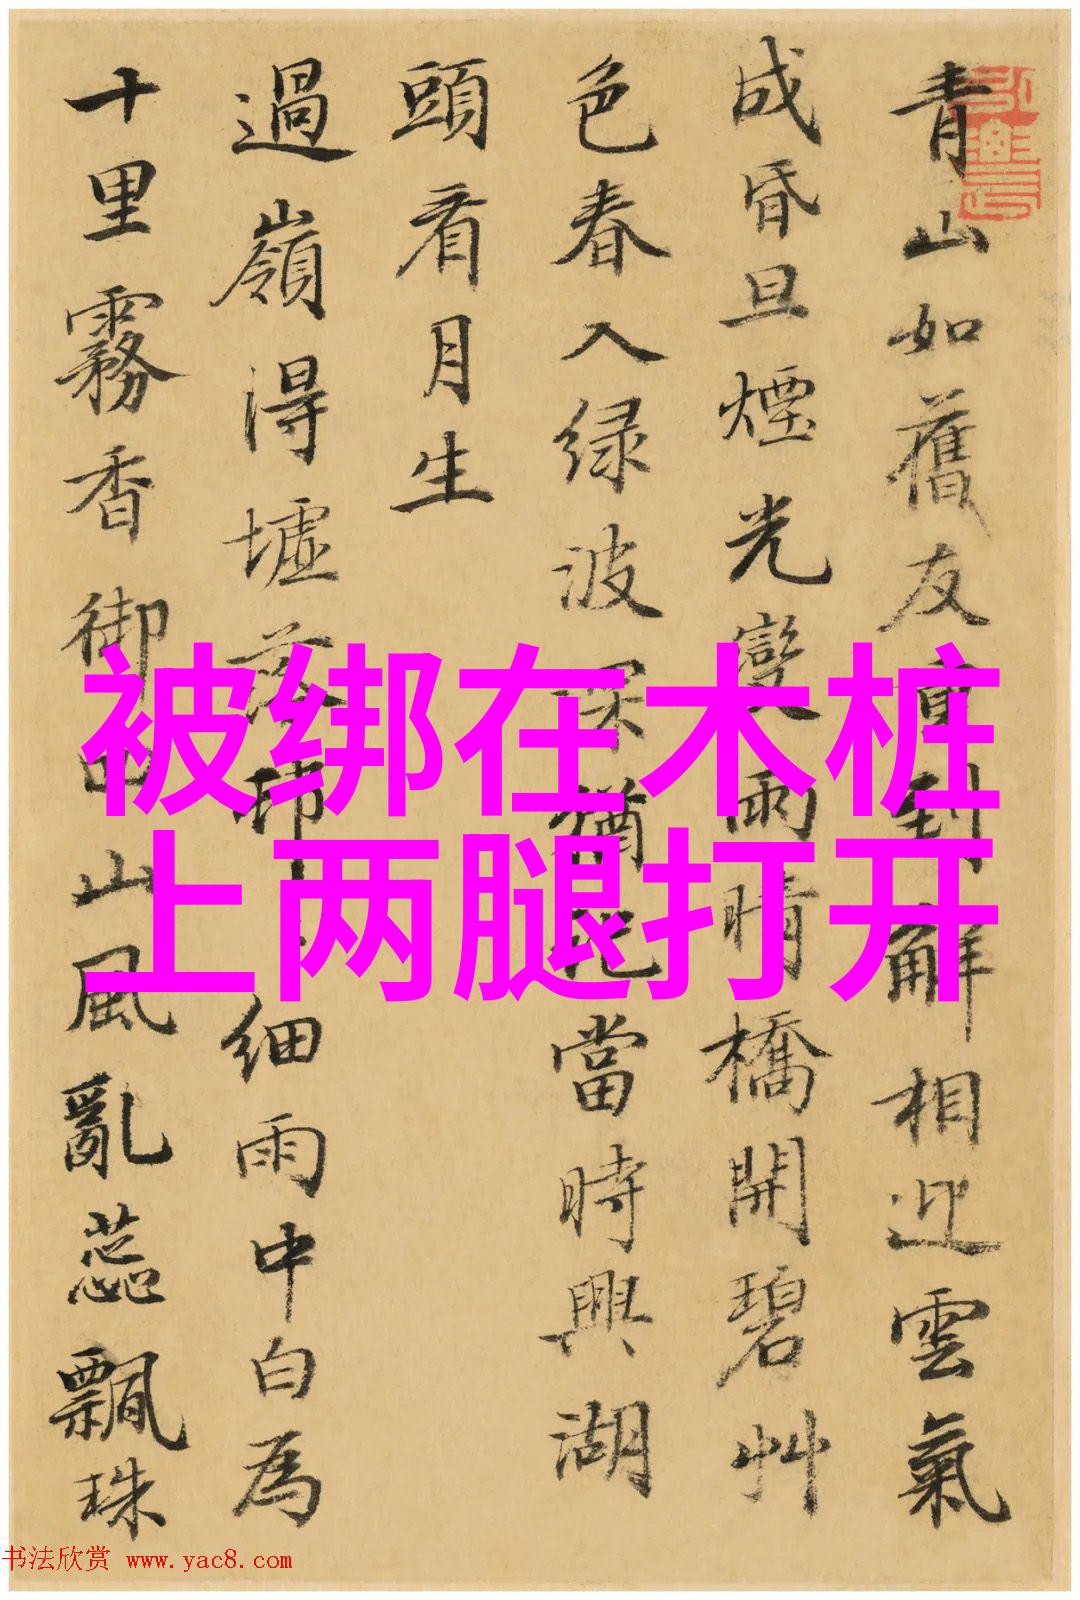 青山如舊友直到解相迎雲氣
成昏旦煙光變雨晴橋開碧艸
色春入绿波深猶記當時興湖
頭看月生
過嶺得墟落細雨中白為
十里霧香御山風亂蕊飄珠
被绑在木桩
上两腿打开
书法欣赏 www.yac8.com